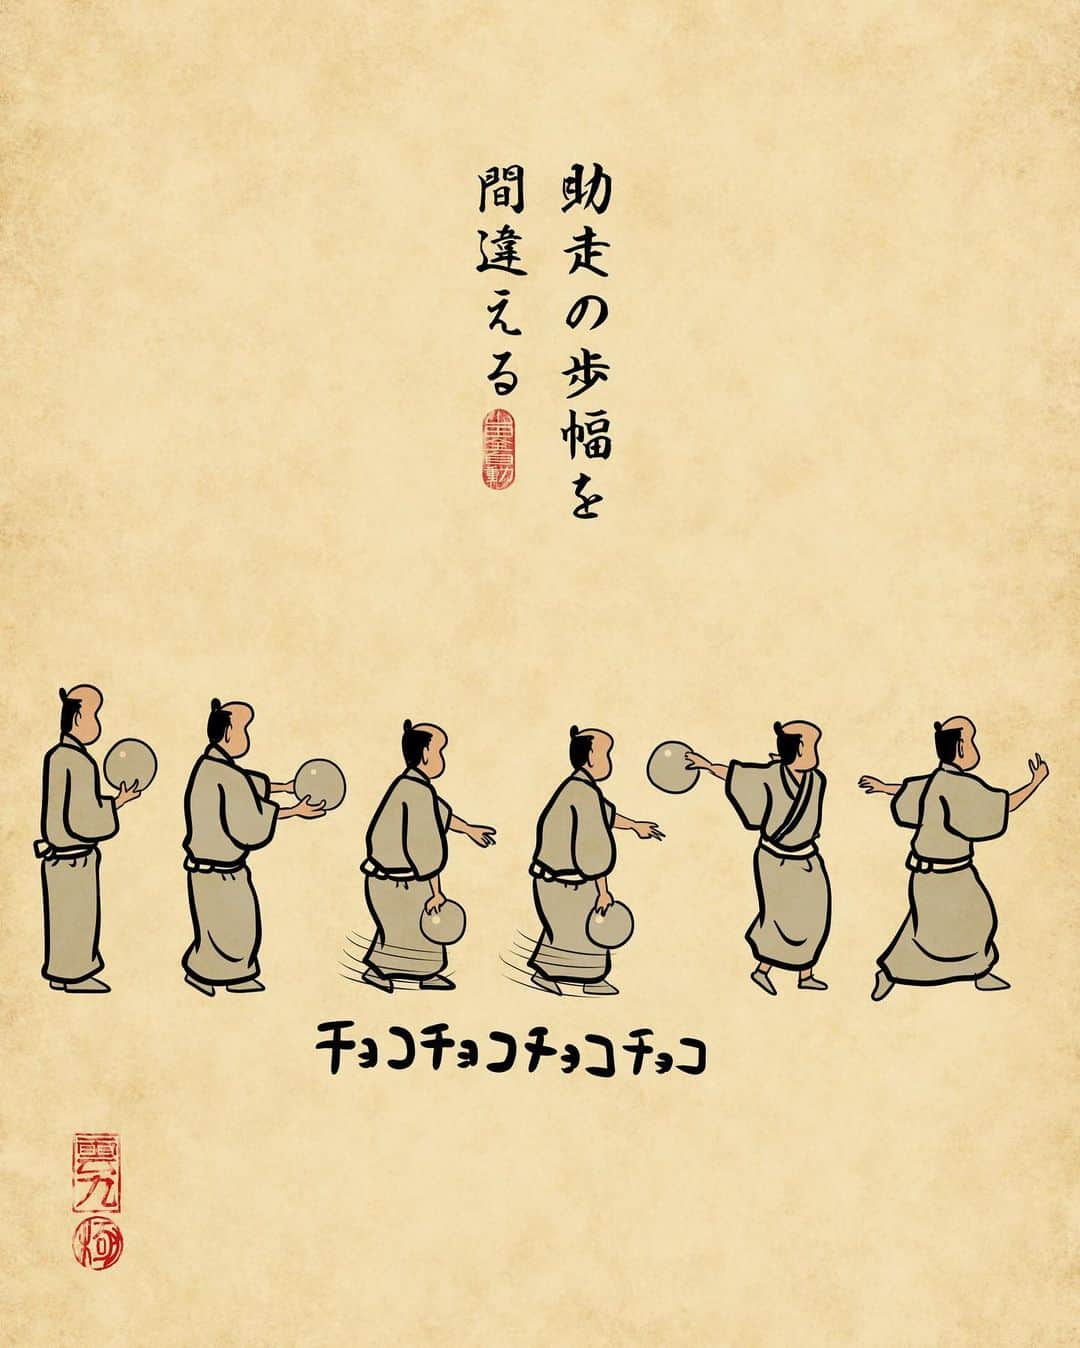 助走の歩幅を
間違える
チョコチョコチョコチョコ